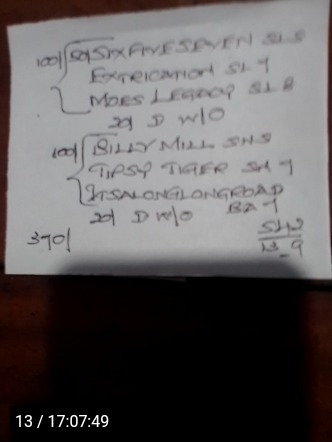 100/ 50/ SIXFIVESEVEN SL 8
EXTRICATION SL 9
MOES LEGACY SL 8
20/ D W/O
100/ BILLY MILL SH 8
TIPSY TIGER SH 9
ITSALONGLONGROAD
20/ D W/O BA 9
370/
13 / 17:07:49